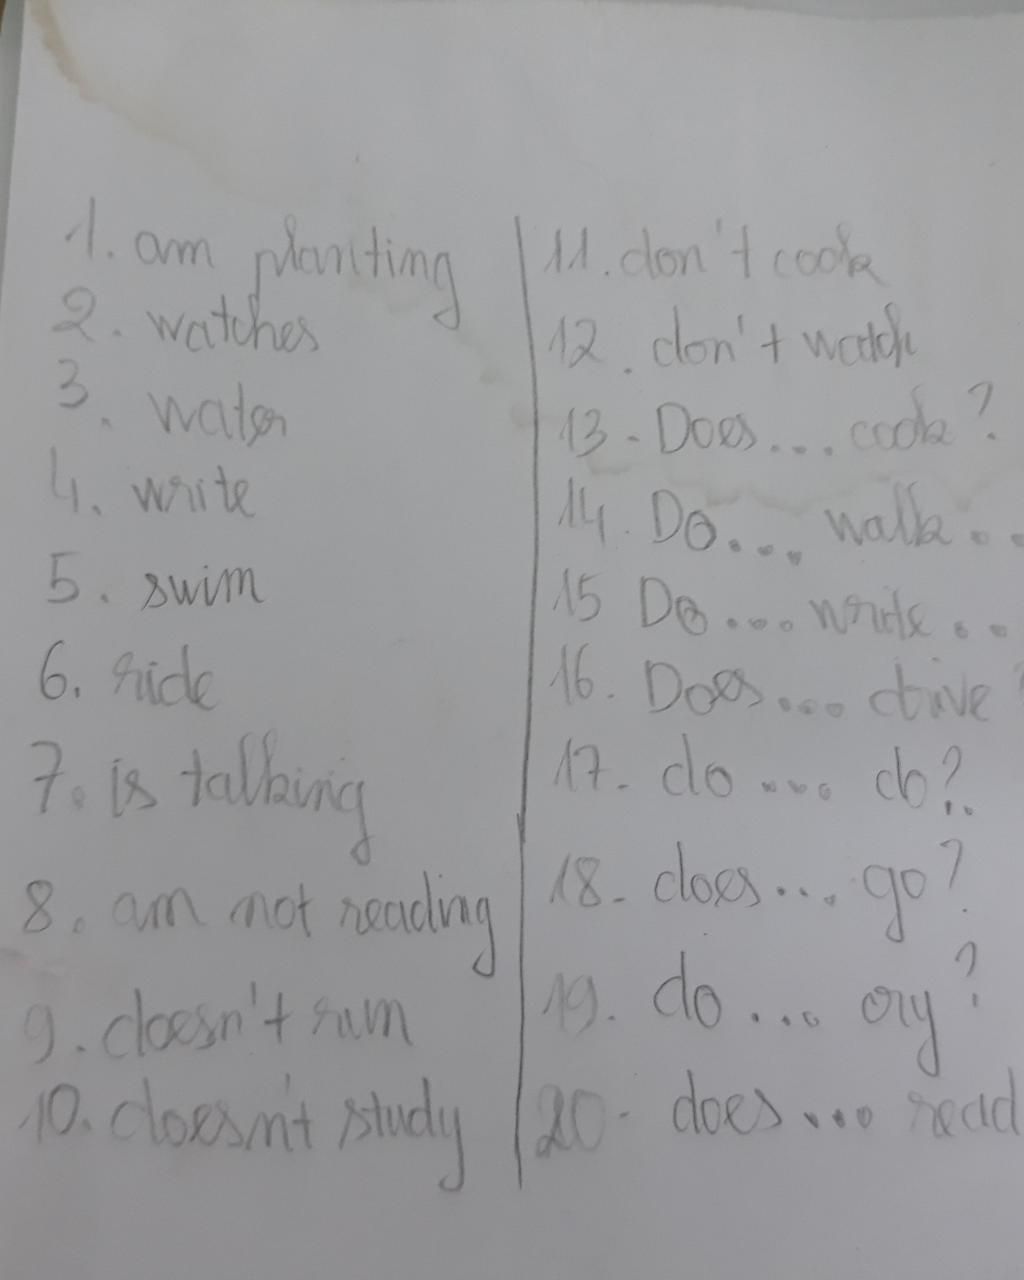 1. am planting
2. watches
3. water
4. write
5. swim
6. ride
7. is talking
8. am not reading
9. doesn't run
10. doesn't study
11. don't cook
12. don't watch
13 - Does... cook?
14. Do.... walk..
15 Do.... write..
16. Does.... drive
17. do .... do?
18. does.... go?
19. do .... cry?
20 - does... read